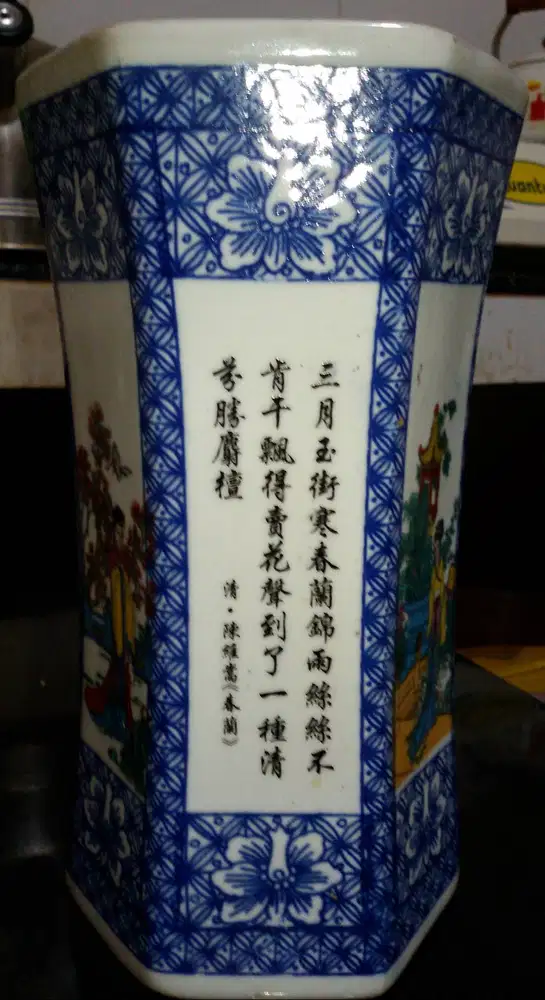 三月玉街寒春蘭錦雨絲絲不
肯干飄得賣花聲到了一種清
芬勝麝檀
清·陳維嵩《春蘭》